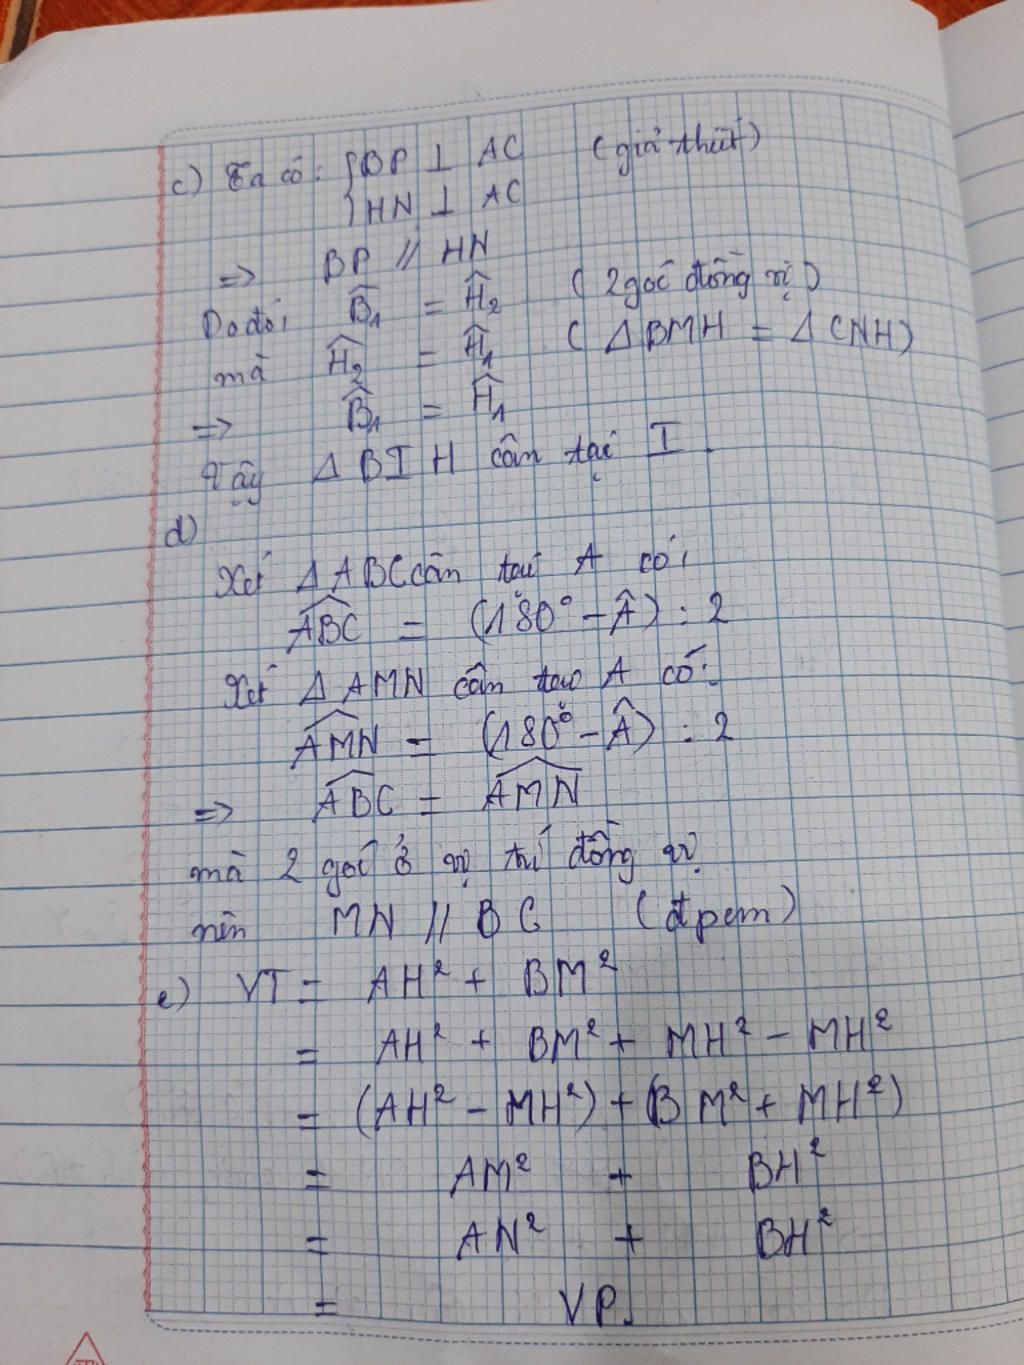 c) Ta có: { BP ⊥ AC (giả thiết)
HN ⊥ AC
=> BP // HN
Do đó: B̂₁ = Ĥ₂ (2 góc đồng vị)
mà Ĥ₂ = Ĥ₁ (ΔBMH = ΔCNH)
=> B̂₁ = Ĥ₁
Vậy ΔBIH cân tại I.
d)
Xét ΔABC cân tại A có:
ABC = (180° - Â) : 2
Xét ΔAMN cân tại A có:
AMN = (180° - Â) : 2
=> ABC = AMN
mà 2 góc ở vị trí đồng vị
nên MN // BC (đpcm)
e) VT = AH² + BM²
= AH² + BM² + MH² - MH²
= (AH² - MH²) + (BM² + MH²)
= AM² + BH²
= AN² + BH²
= VP.